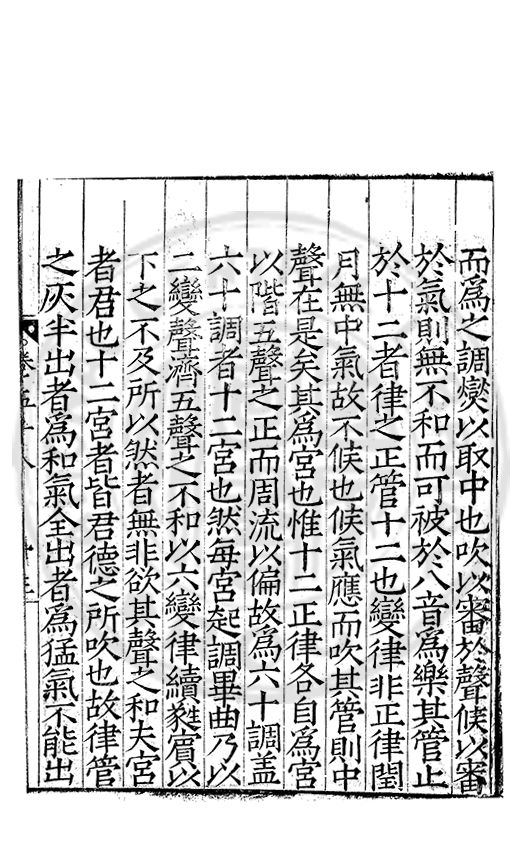 而為之調燮以取中也吹以審於聲候以審
於氣則無不和而可被於八音為樂其管止
於十二者律之正管十二也變律非正律閏
月無中氣故不候也候氣應而吹其管則中
聲在是矣其為宮也惟十二正律各自為宮
以階五聲之正而周流以偏故為六十調蓋
六十調者十二宮也然每宮起調畢曲乃以
二變聲濟五聲之不和以六變律續蕤賔以
下之不及所以然者無非欲其聲之和夫宮
者君也十二宮者皆君德之所吹也故律管
之灰半出者為和氣全出者為猛氣不能出